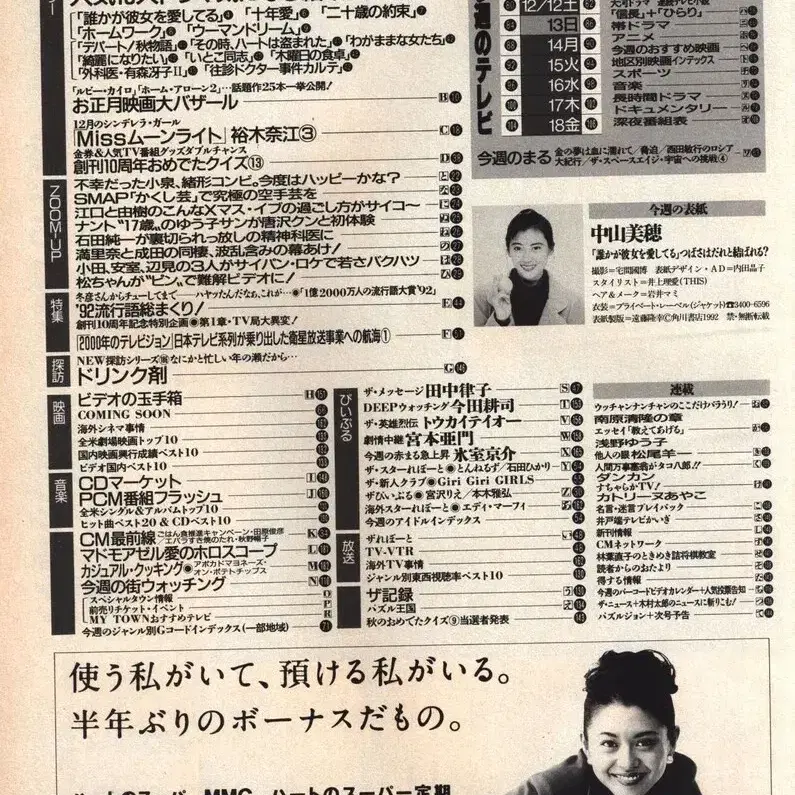 「誰かが彼女を愛してる」「十年愛」「二十歳の約束」
「ホームワーク」「ウーマンドリーム」
「デパート!秋物語」「その時、ハートは盗まれた」「わがままな女たち」
「綺麗になりたい」「いとこ同志」「木曜日の食卓」
「外科医・有森冴子II」「往診ドクター事件カルテ」
「ルビー・カイロ」「ホーム・アローン2」…話題作25本一挙公開!
お正月映画大バザール B
12月のシンデレラ・ガール
「Missムーンライト」裕木奈江③ C
金券&人気TV番組グッズダブルチャンス
創刊10周年おめでたクイズ⑬ D
ZOOM-UP
不幸だった小泉、緒形コンビ。今度はハッピーかな? と
SMAP「かくし芸」で究極の空手芸を
江口と由樹のこんなXマス・イブの過ごし方がサイコ〜
ナント"17歳"のゆう子サンが唐沢クンと初体験
石田純一が裏切られっ放しの精神科医に
満里奈と成田の同棲、波乱含みの幕あけ!
小田、安室、辺見の3人がサイパン・ロケで若さバクハツ
松ちゃんが"ピン"で難解ビデオに!
特集
冬彦さんからチューしてまで……ハヤッたんだなぁ、これが…◉「1億2000万人の流行語大賞'92」
'92流行語総まくり! E
創刊10周年記念特別企画◉第1章・TV局大異変!
「2000年のテレビジョン」日本テレビ系列が乗り出した衛星放送事業への航海① F
探訪
NEW探訪シリーズ なにかと忙しい年の瀬だから…
ドリンク剤 G
映画
ビデオの玉手箱 H
COMING SOON
海外シネマ事情
全米劇場映画トップ10
国内映画興行成績ベスト10
ビデオ国内ベスト10
音楽
CDマーケット I
PCM番組フラッシュ J
全米シングル&アルバムトップ10
ヒット曲ベスト20&CDベスト10
CM最前線 ごはん食推進キャンペーン・田原俊彦 エバラすき焼のたれ・秋野暢子 K
マドモアゼル愛のホロスコープ L
カジュアル・クッキング◉アボカドマヨネーズ・オン・ポテトチップス M
今週の街ウォッチング N
スペシャルタウン情報 O
前売りチケット・イベント P
MY TOWNおすすめテレビ R
今週のジャンル別Gコードインデックス(一部地域)
ぴいぷる
ザ・メッセージ 田中律子 S
DEEPウォッチング 今田耕司 T
ザ・英雄烈伝 トウカイテイオー V
劇情中継 宮本亜門 W
今週の赤まる急上昇 氷室京介 X
ザ・スターれぽーと◉とんねるず/石田ひかり Y
ザ・新人クラブ◉Giri Giri GIRLS
ザぴいぷる◉宮沢りえ/本木雅弘 Z
海外スターれぽーと◉エディ・マーフィ
今週のアイドルインデックス
放送
ザれぽーと
TV-VTR
海外TV事情
ジャンル別東西視聴率ベスト10
ザ記録
パズル王国
秋のおめでたクイズ⑨当選者発表
今週のテレビ
12/12土
13日
14月
15火
16水
17木
18金
「信長」+「ひらり」
帯ドラマ
アニメ
今週のおすすめ映画
地区別映画インデックス
スポーツ
音楽
長時間ドラマ
ドキュメンタリー
深夜番組表
今週のまる 金の夢は血に濡れて/脅迫/西田敏行のロシア大紀行/ザ・スペースエイジ・宇宙への挑戦④
今週の表紙
中山美穂
「誰かが彼女を愛してる」つばさはだれと結ばれる?
撮影=宅間國博 表紙デザイン・AD=内田晶子
スタイリスト=井上理愛(THIS)
ヘア&メーク=岩井マミ
衣装=プライベート・レーベル(ジャケット)☎3400-6596
表紙製版=遠藤隆幸©角川書店1992 禁・無断転載
連載
ウッチャンナンチャンのここだけバラうり!
南原清隆の章
エッセイ「教えてあげる」
浅野ゆう子
他人の眼 松尾羊一
人間万事塞翁がタコ八郎!!
ダンカン
すちゃらかTV!
カトリーヌあやこ
名言・迷言プレイバック
井戸端テレビかいぎ
新刊情報
CMネットワーク
林葉直子のときめき詰将棋教室
読者からのおたより
得する情報
今週のバーコードビデオカレンダー+人気投票告知
ザ・ニュース+木村太郎のニュースに斬りこむ!
パズルジョン+次号予告
使う私がいて、預ける私がいる。
半年ぶりのボーナスだもの。